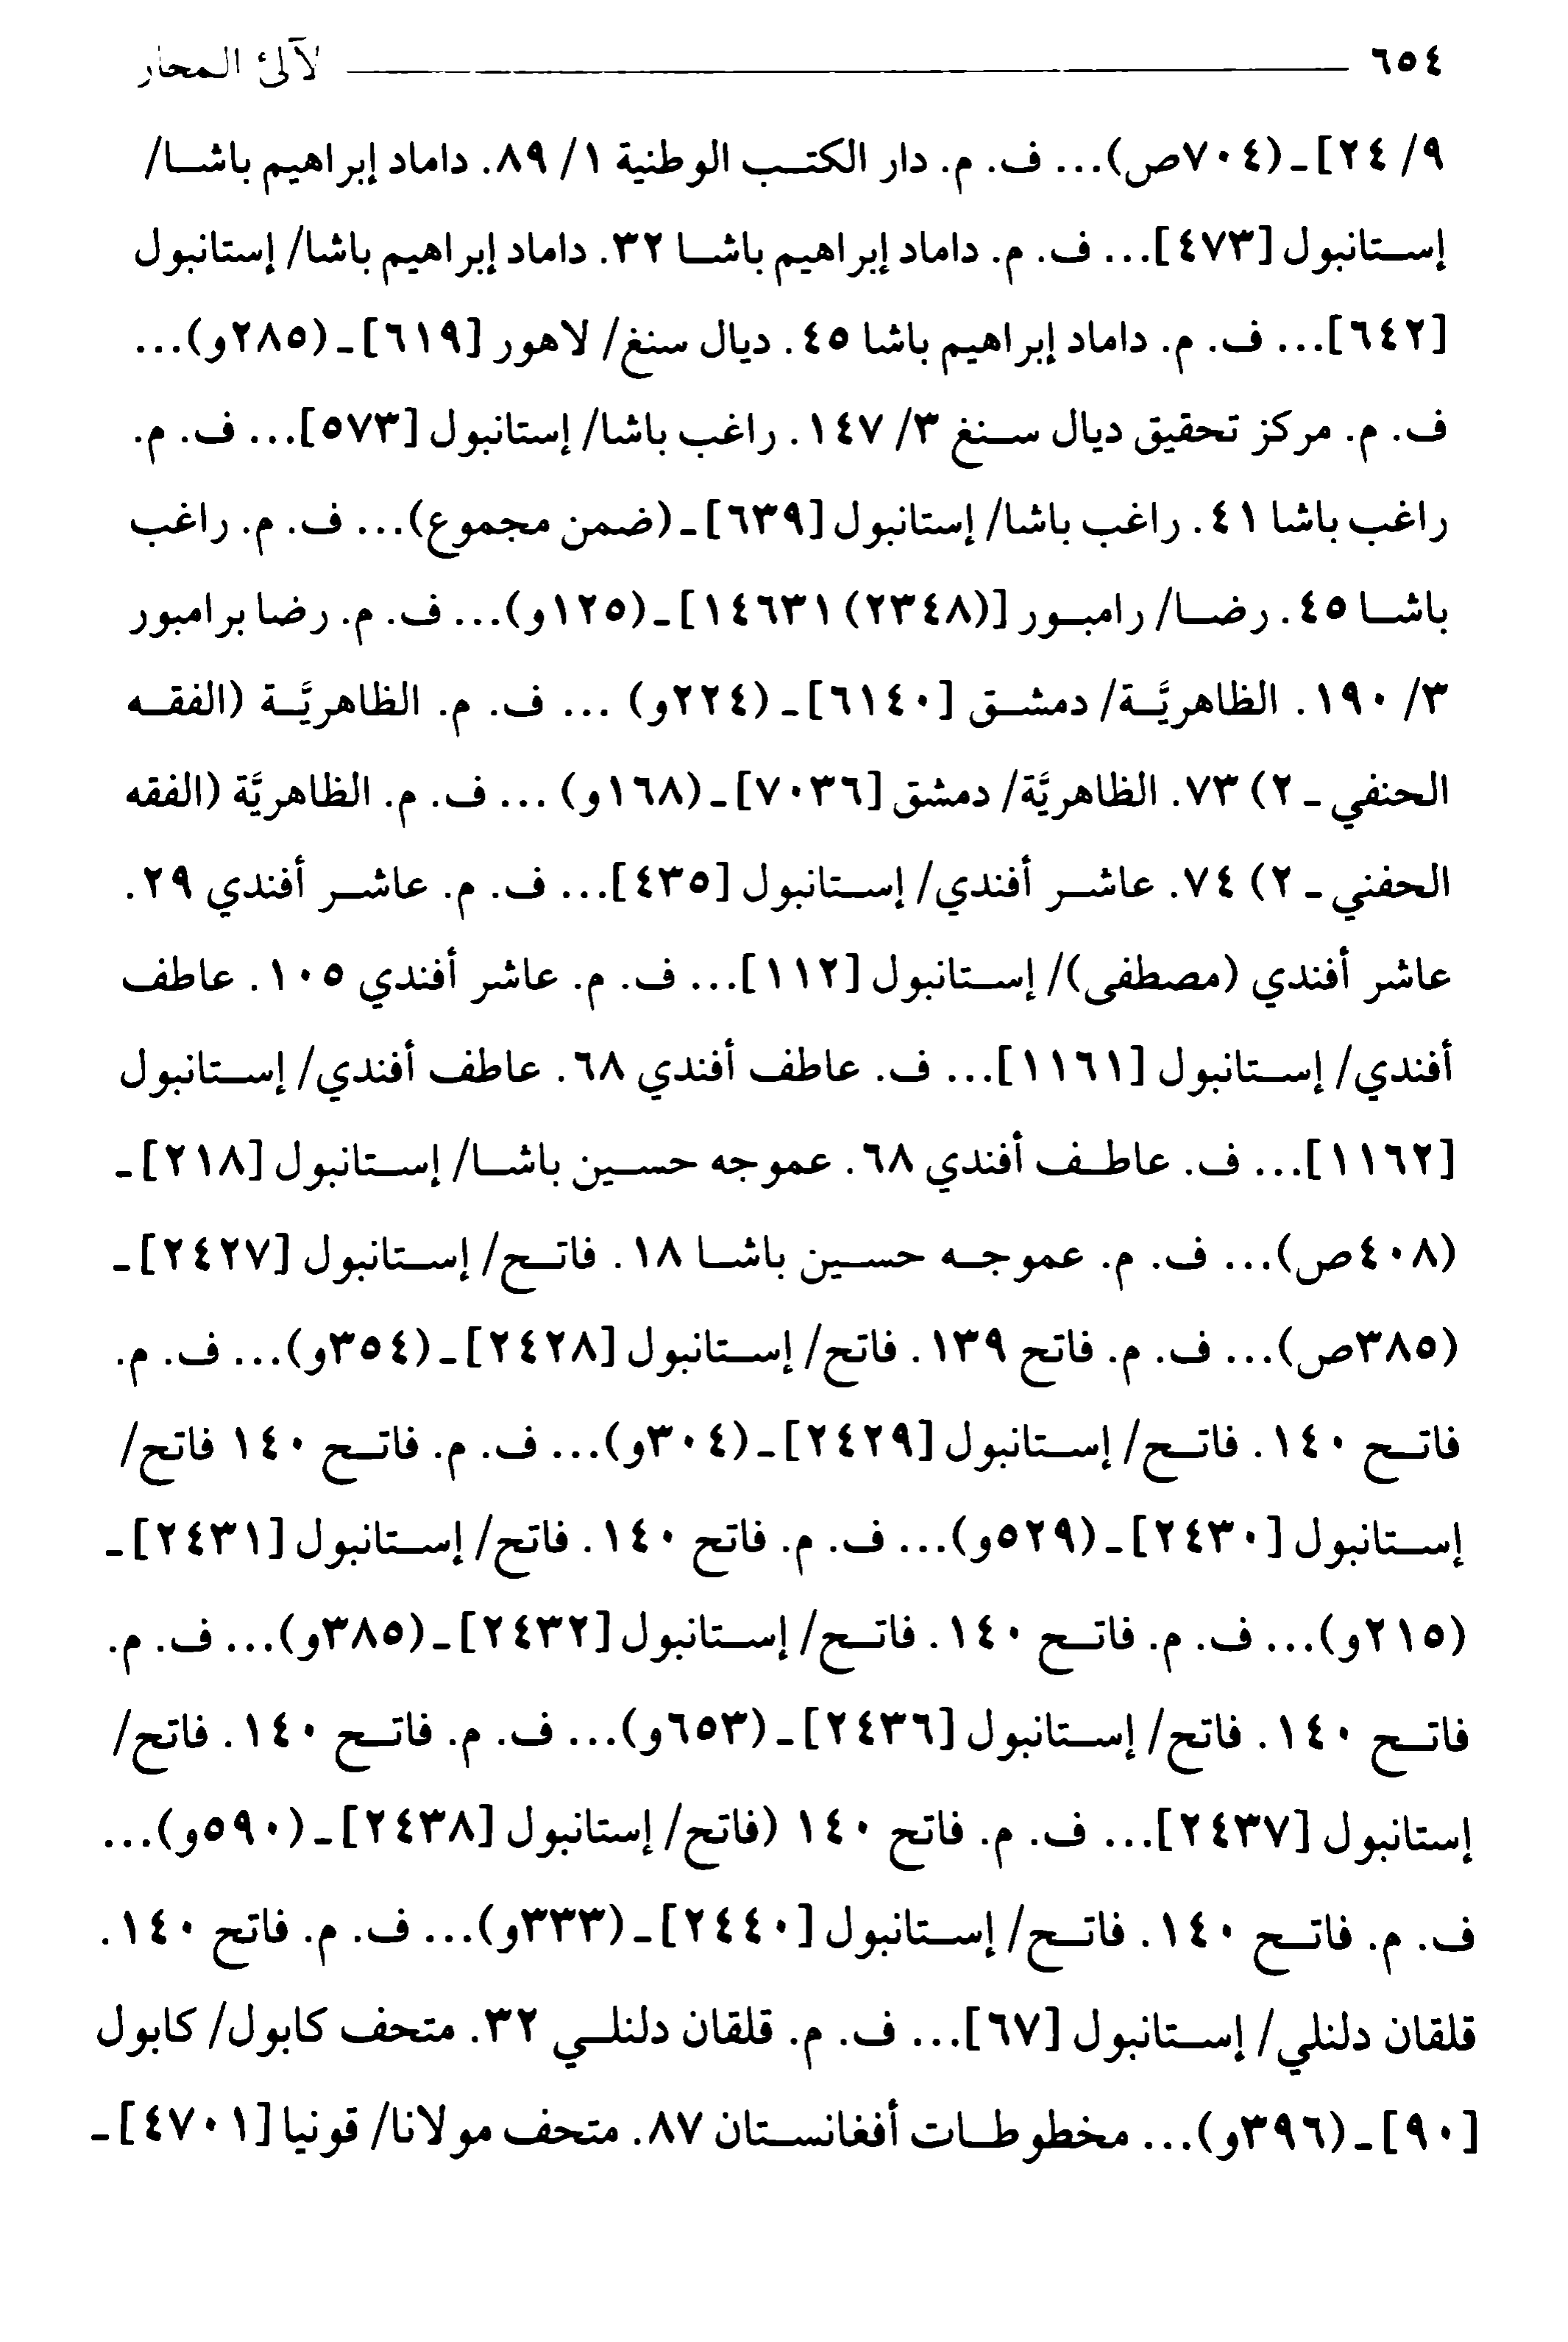 ٦٥٤ لآلئ المحار
٩/ ٢٤] ـ (٧٠٤ص)... ف. م. دار الكتب الوطنية ١/ ٨٩. داماد إبراهيم باشا/
إستانبول [٤٧٣]... ف. م. داماد إبراهيم باشا ٣٢. داماد إبراهيم باشا/ إستانبول
[٦٤٢]... ف. م. داماد إبراهيم باشا ٤٥. ديال سنغ/ لاهور [٦١٩] ـ (٢٨٥و)...
ف. م. مركز تحقيق ديال سنغ ٣/ ١٤٧. راغب باشا/ إستانبول [٥٧٣]... ف. م.
راغب باشا ٤١. راغب باشا/ إستانبول [٦٣٩] ـ (ضمن مجموع)... ف. م. راغب
باشا ٤٥. رضا/ رامبور [(٢٣٤٨) ١٤٦٣١] ـ (١٢٥و)... ف. م. رضا برامبور
٣/ ١٩٠. الظاهريَّة/ دمشق [٦١٤٠] ـ (٢٢٤و) ... ف. م. الظاهريَّة (الفقه
الحنفي ـ ٢) ٧٣. الظاهريَّة/ دمشق [٧٠٣٦] ـ (١٦٨و) ... ف. م. الظاهريَّة (الفقه
الحفني ـ ٢) ٧٤. عاشر أفندي/ إستانبول [٤٣٥]... ف. م. عاشر أفندي ٢٩.
عاشر أفندي (مصطفى)/ إستانبول [١١٢]... ف. م. عاشر أفندي ١٠٥. عاطف
أفندي/ إستانبول [١١٦١]... ف. عاطف أفندي ٦٨. عاطف أفندي/ إستانبول
[١١٦٢]... ف. عاطف أفندي ٦٨. عموجه حسين باشا/ إستانبول [٢١٨] ـ
(٤٠٨ص)... ف. م. عموجه حسين باشا ١٨. فاتح/ إستانبول [٢٤٢٧] ـ
(٣٨٥ص)... ف. م. فاتح ١٣٩. فاتح/ إستانبول [٢٤٢٨] ـ (٣٥٤و)... ف. م.
فاتح ١٤٠. فاتح/ إستانبول [٢٤٢٩] ـ (٣٠٤و)... ف. م. فاتح ١٤٠ فاتح/
إستانبول [٢٤٣٠] ـ (٥٢٩و)... ف. م. فاتح ١٤٠. فاتح/ إستانبول [٢٤٣١] ـ
(٢١٥و)... ف. م. فاتح ١٤٠. فاتح/ إستانبول [٢٤٣٢] ـ (٣٨٥و)... ف. م.
فاتح ١٤٠. فاتح/ إستانبول [٢٤٣٦] ـ (٦٥٣و)... ف. م. فاتح ١٤٠. فاتح/
إستانبول [٢٤٣٧]... ف. م. فاتح ١٤٠ (فاتح/ إستانبول [٢٤٣٨] ـ (٥٩٠و)...
ف. م. فاتح ١٤٠. فاتح/ إستانبول [٢٤٤٠] ـ (٣٣٣و)... ف. م. فاتح ١٤٠.
قلقان دلنلي/ إستانبول [٦٧]... ف. م. قلقان دلنلي ٣٢. متحف كابول/ كابول
[٩٠] ـ (٣٩٦و)... مخطوطات أفغانستان ٨٧. متحف مولانا/ قونيا [٤٧٠١] ـ